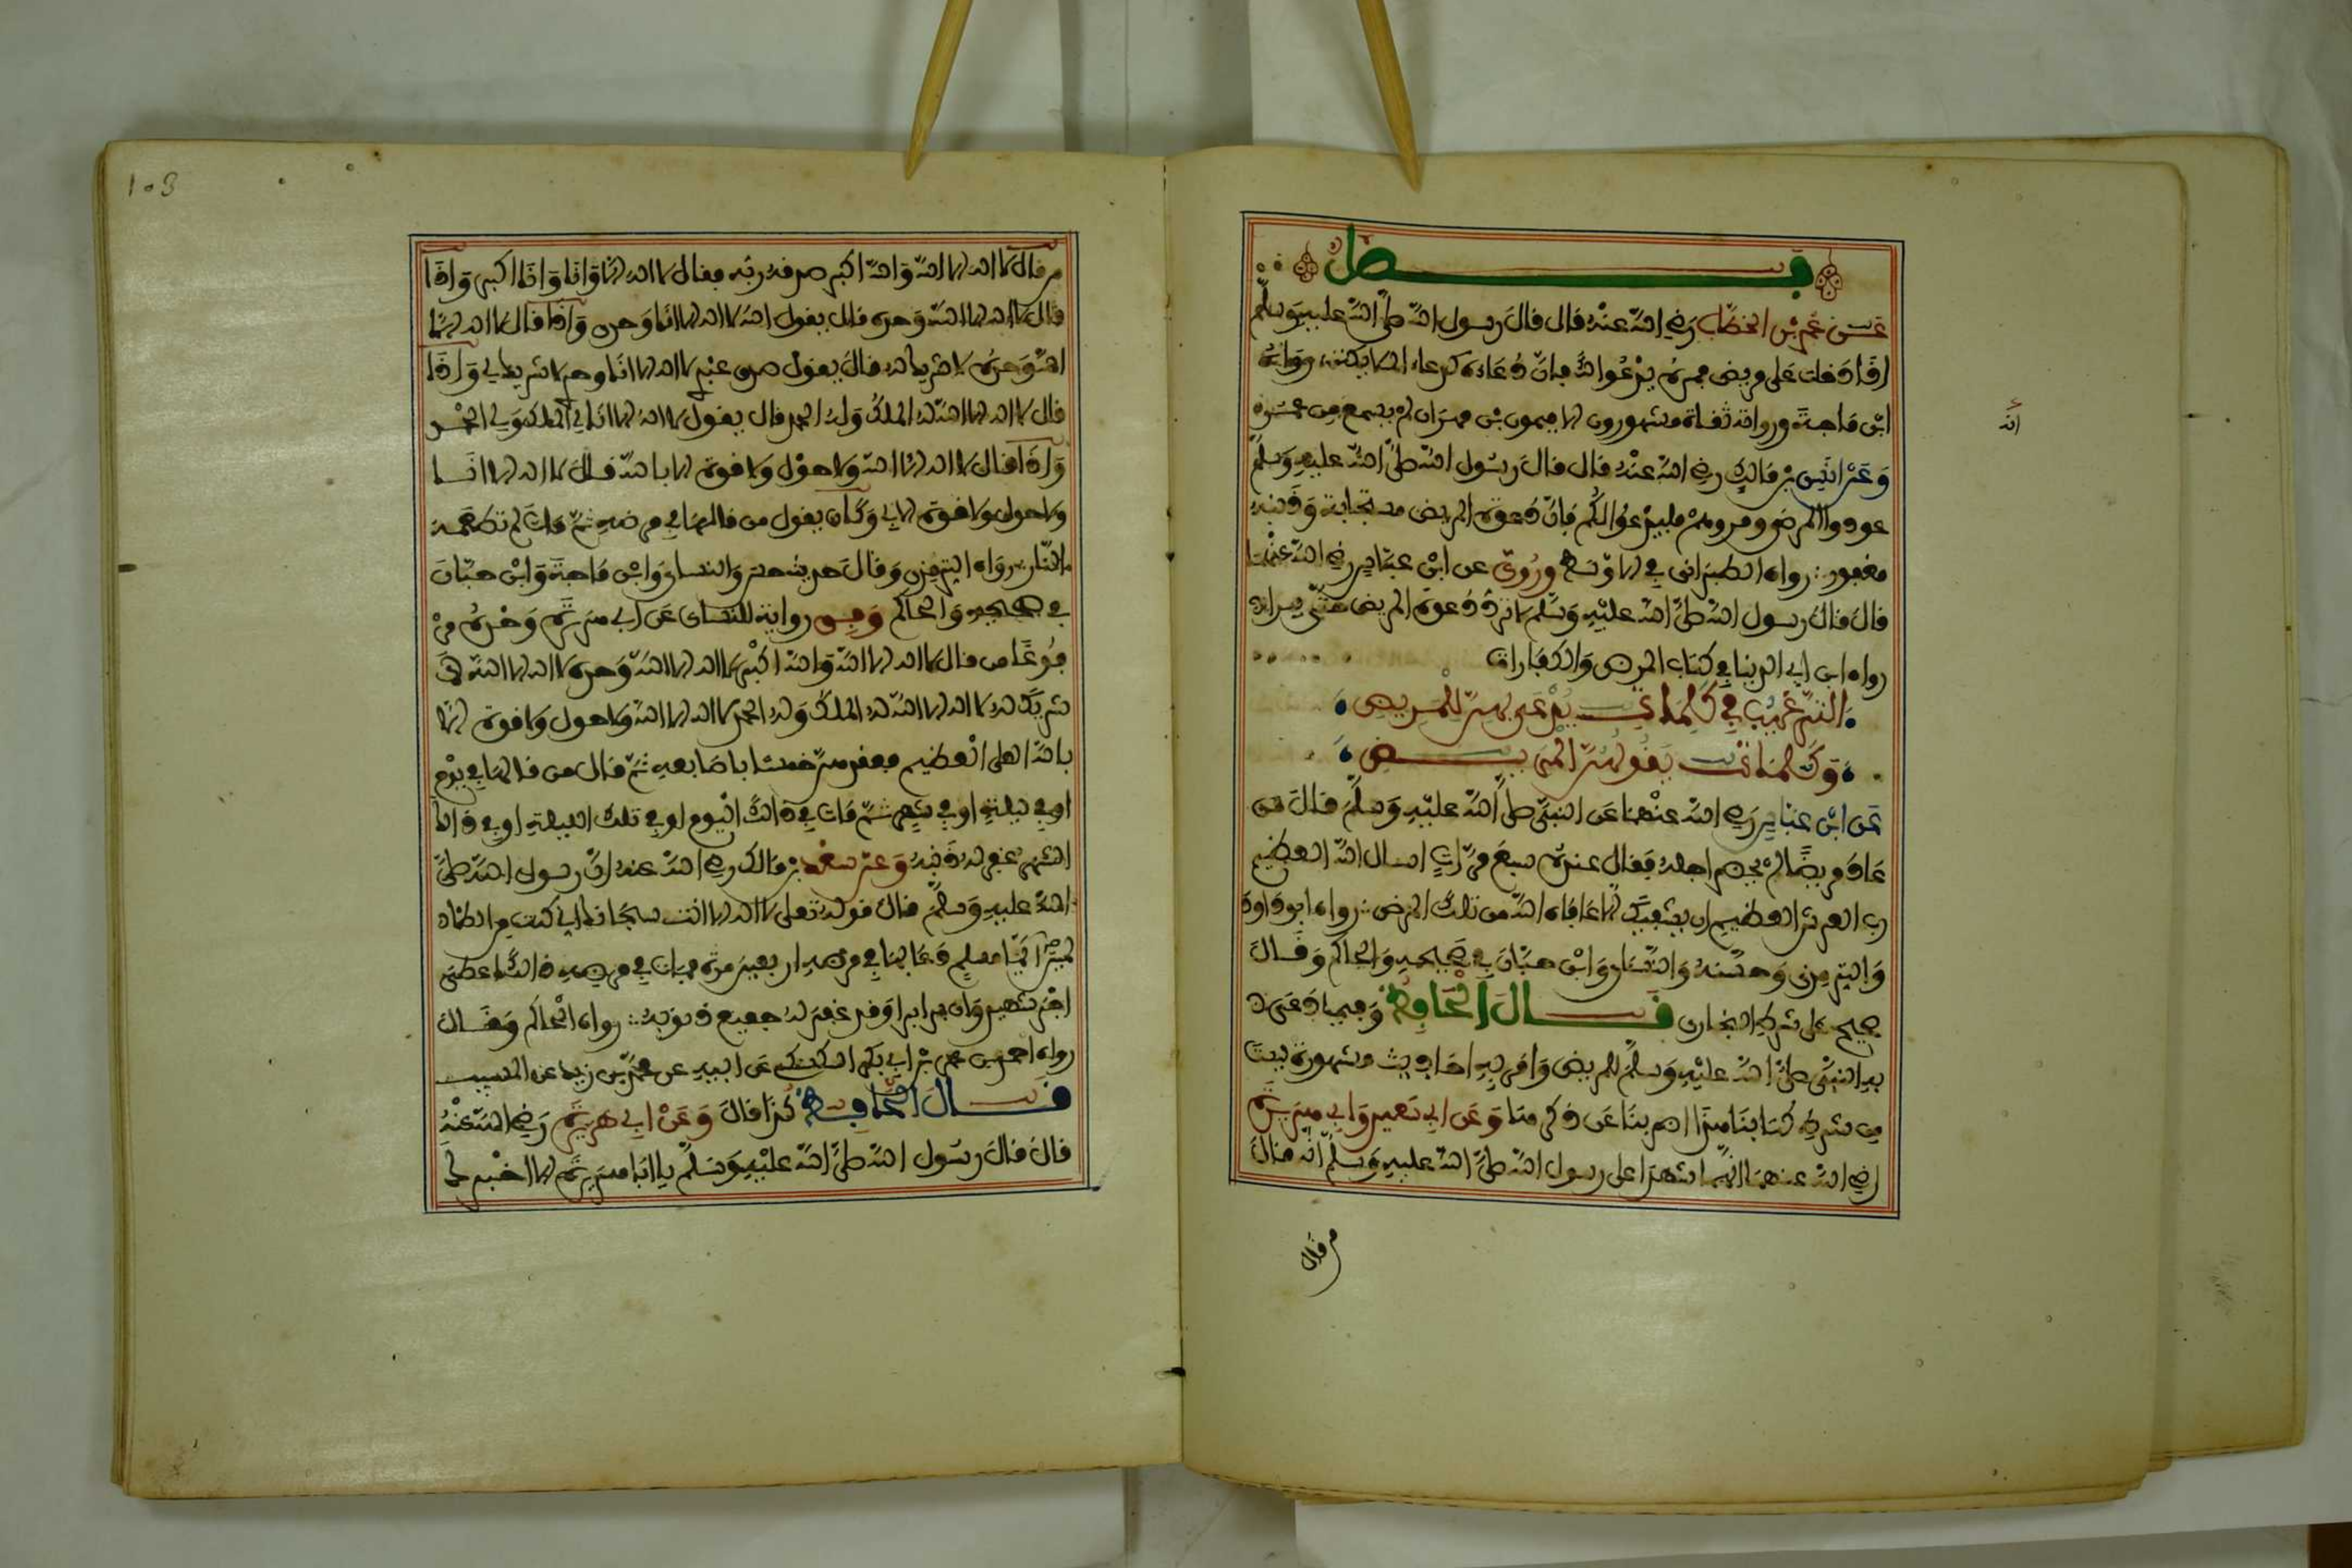 فصل
عن عمر بن الخطاب رضي الله عنه قال قال رسول الله صلى الله عليه وسلم
اذا دخلت على مريض فمره يدعوا لك فان دعاءه كدعاء الملائكة رواه
ابن ماجة ورواته ثقاة مشهورون الا ميمون بن مهران لم يسمع من عمر
وعن انس بن مالك رضي الله عنه قال قال رسول الله صلى الله عليه وسلم
عودوا المرضى ومروهم فليدعوا لكم فان دعوة المريض مستجابة وذنبه
مغفور رواه الطبراني في الاوسط وروي عن ابن عباس رضي الله عنهما
قال قال رسول الله صلى الله عليه وسلم لا ترد دعوة المريض حتى يبرا
رواه ابن ابي الدنيا في كتاب المرض والكفارات
الترغيب في كلمات يدعى بهن للمريض
وكلمات يقولهن المريض
عن ابن عباس رضي الله عنهما عن النبي صلى الله عليه وسلم قال من
عاد مريضا لم يحضر اجله فقال عنده سبع مرات اسال الله العظيم
رب العرش العظيم ان يشفيك الا عافاه الله من ذلك المرض رواه ابو داود
والترمذي وحسنه والنسائ وابن حبان في صحيحه والحاكم وقال
صحيح على شرط البخاري قال الحافظ وفيما دعى
به النبي صلى الله عليه وسلم للمريض وامر به احاديث مشهورة ليست
من شرط كتابنا هذا اضربنا عن ذكرها وعن ابي سعيد وابي هريرة
رضي الله عنهما انهما شهدا على رسول الله صلى الله عليه وسلم انه قال
من قال
انه
103
من قال لا اله الا الله والله اكبر صدقه ربه فقال لا اله الا انا وانا اكبر واذا
قال لا اله الا الله وحده قال يقول الله لا اله الا انا وحدي واذا قال لا اله الا
الله وحده لا شريك له قال يقول صدق عبدي لا اله الا انا وحدي لا شريك لي واذا
قال لا اله الا الله له الملك وله الحمد قال يقول لا اله الا انا لي الملك ولي الحمد
واذا قال لا اله الا الله ولا حول ولا قوة الا بالله قال لا اله الا انا
ولا حول ولا قوة الا بي وكان يقول من قالها في مرضه ثم مات لم تطعمه
النار رواه الترمذي وقال حديث حسن والنسائ وابن ماجة وابن حبان
في صحيحه والحاكم وفي رواية للنسائ عن ابي هريرة وحده مر
فوعا من قال لا اله الا الله والله اكبر لا اله الا الله وحده لا اله الا الله لا
شريك له لا اله الا الله له الملك وله الحمد لا اله الا الله ولا حول ولا قوة الا
بالله العلي العظيم يعقدهن خمسا باصابعه ثم قال من قالهن في يوم
او في ليلة او في شهر ثم مات في ذلك اليوم او في تلك الليلة او في ذلك
الشهر غفر له ذنبه وعن سعد بن مالك رضي الله عنه ان رسول الله صلى
الله عليه وسلم قال قوله تعلى لا اله الا انت سبحانك اني كنت من الظالمين
ايما مسلم دعا بها في مرضه اربعين مرة فمات في مرضه ذلك اعطي
اجر شهيد وان برا برا وقد غفر له جميع ذنوبه رواه الحاكم وقال
رواه احمد بن عمرو بن ابي بكر السكسكي عن ابيه عن محمد بن زيد عن المسيب
قال الحافظ كذا قال وعن ابي هريرة رضي الله عنه
قال قال رسول الله صلى الله عليه وسلم يا ابا هريرة الا اخبرك